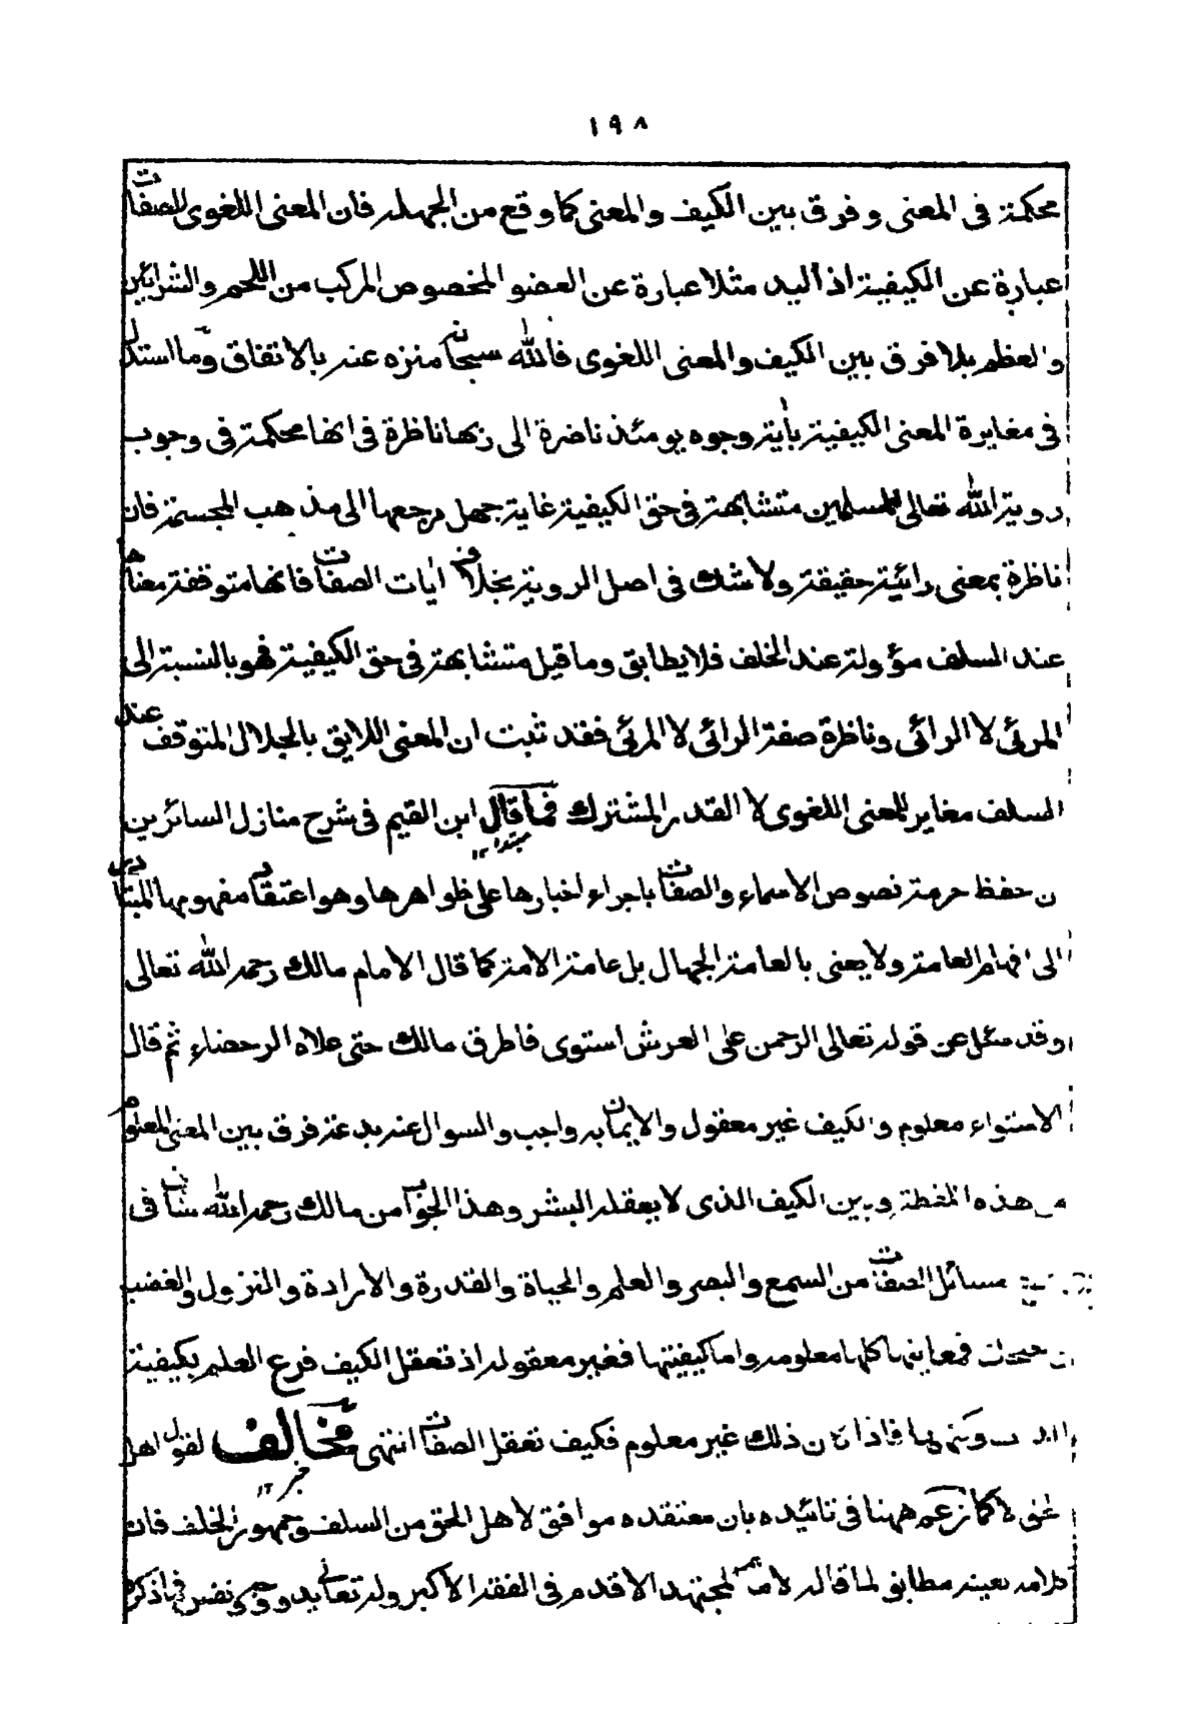 ١٩٨
محكمة فى المعنى وفرق بين الكيف والمعنى كما وقع من الجهلة فان المعنى اللغوى للصفات
عبارة عن الكيفية اذ اليد مثلا عبارة عن العضو المخصوص المركب من اللحم والشرائين
والعظم بلا فرق بين الكيف والمعنى اللغوى فالله سبحانه منزه عنه بالاتفاق وما استدل
فى مغايرة المعنى الكيفية بأية وجوه يومئذ ناضرة الى ربها ناظرة فى انها محكمة فى وجوب
روية الله تعالى للمسلمين متشابهة فى حق الكيفية غاية جهل مرجعها الى مذهب المجسمة فان
ناظرة بمعنى رائية حقيقة ولا شك فى اصل الروية بخلاف أيات الصفات فانها متوقفة معناها
عند السلف مؤولة عند الخلف فلا يطابق وما قيل متشابهة فى حق الكيفية فهو بالنسبة الى
المرئى لا الرائى وناظرة صفة الرائى لا المرئى فقد ثبت ان المعنى اللايق بالجلال المتوقف عند
السلف مغاير للمعنى اللغوى لا القدر المشترك فما قال ابن القيم فى شرح منازل السائرين
مبتدا ١٢
ن حفظ حرمة نصوص الاسماء والصفات باجراء اخبارها على ظواهرها وهو اعتقاد مفهومها المتبادر
الى افهام العامة ولا يعنى بالعامة الجهال بل عامة الامة كما قال الامام مالك رحمه الله تعالى
وقد سئل عن قوله تعالى الرحمن على العرش استوى فاطرق مالك حتى علاه الرحضاء ثم قال
الاستواء معلوم والكيف غير معقول والايمان به واجب والسوال عنه بدعة فرق بين المعنى المعلوم
من هذه اللفظة وبين الكيف الذى لا يعقله البشر وهذا الجواب من مالك رحمه الله شاف فى
مسائل الصفات من السمع والبصر والعلم والحياة والقدرة والارادة والنزول والغضب
فمعانيها كلها معلومه واما كيفيتها فغير معقوله اذ تعقل الكيف فرع العلم بكيفية
وكنهها فاذا كان ذلك غير معلوم فكيف تعقل الصفات انتهى مخالف لقول اهل
خبر ١٢
لا كما زعم ههنا فى تائيده بان معتقده موافق لاهل الحق من السلف وجمهور الخلف فان
كلامه بعينه مطابق لما قاله المجتهد الاقدم فى الفقه الاكبر وله تعالى يد ووجه ونفس فما ذكر